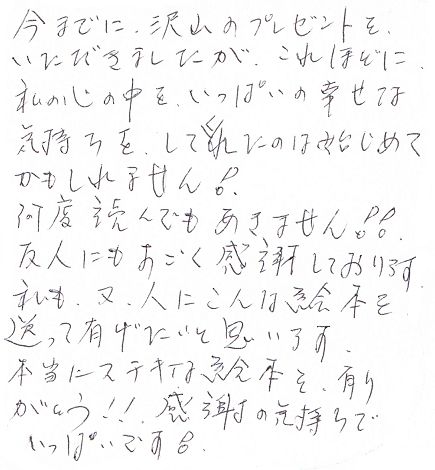 今までに、沢山のプレゼントを、
いただきましたが、これほどに、
私の心の中を、いっぱいの幸せな
気持ちを、してくれたのは始じめて
かもしれません!
何度読んでもあきません!!
友人にもすごく感謝しております。
私も、又、人にこんな絵本を
送って有げたいと思います。
本当にステキな絵本を、有り
がとう!! 感謝の気持ちで
いっぱいです!